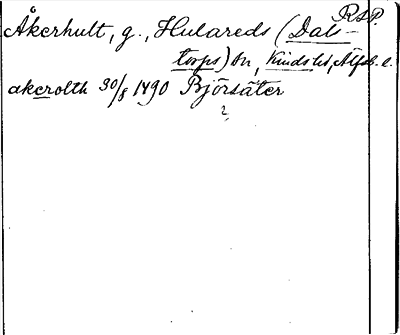 RSP.
Åkerhult, g., Hulareds (Dals-
torps) sn, Kinds hd, Älfsb. l.
akerolth 30/8 1490 Björsäter
?